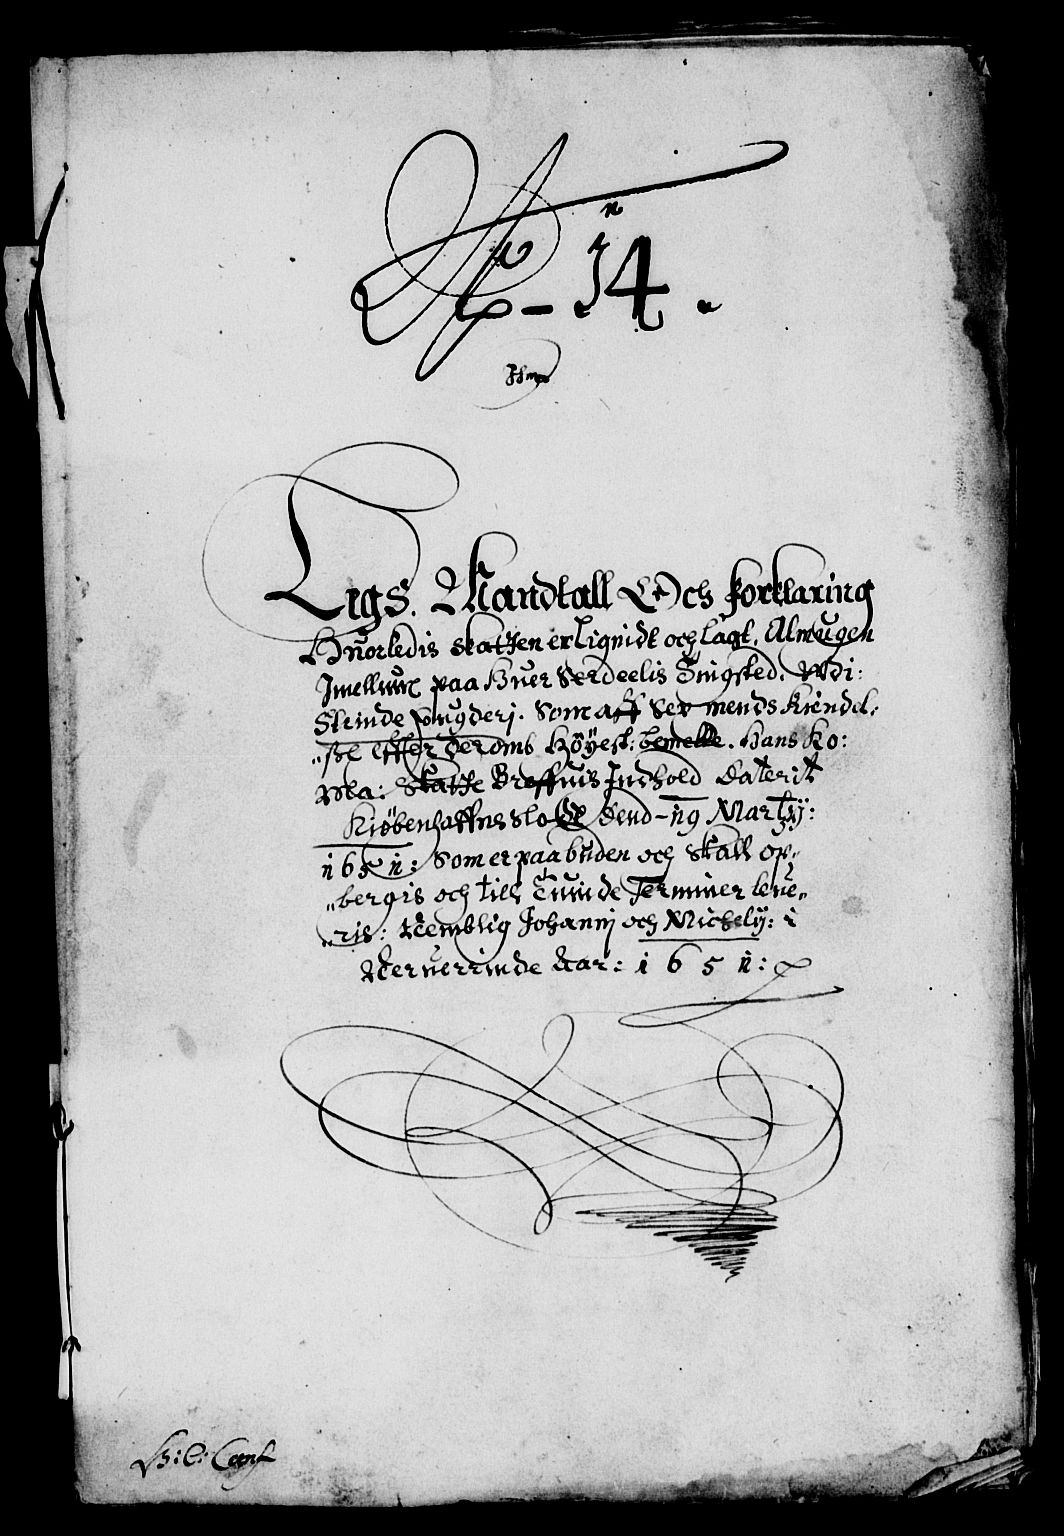 N - 14.
Tigs. Mandtall Och forklaring
Huorledis skatten er Lignidt och lagt. Almugen
Imellum paa huer Serdeelis Tingsted. Udi:
Steinde fougderj. Som aff Sex mends Kiendel,,
,,ße Efter deromb Höyest: bemelte. Hans Ko:
Ma: Skatte Breffuis Indhold Daterit
Kiøbenhaffns slott Dend -19 Marty:
1651: Som er paabuden och skall op,,
,,bergis och till Tuinde Terminer leue,,
,,ris: Nemblig Johannj och Michely: i
Neruerrinde Aar: 1651:
H: C: Conf